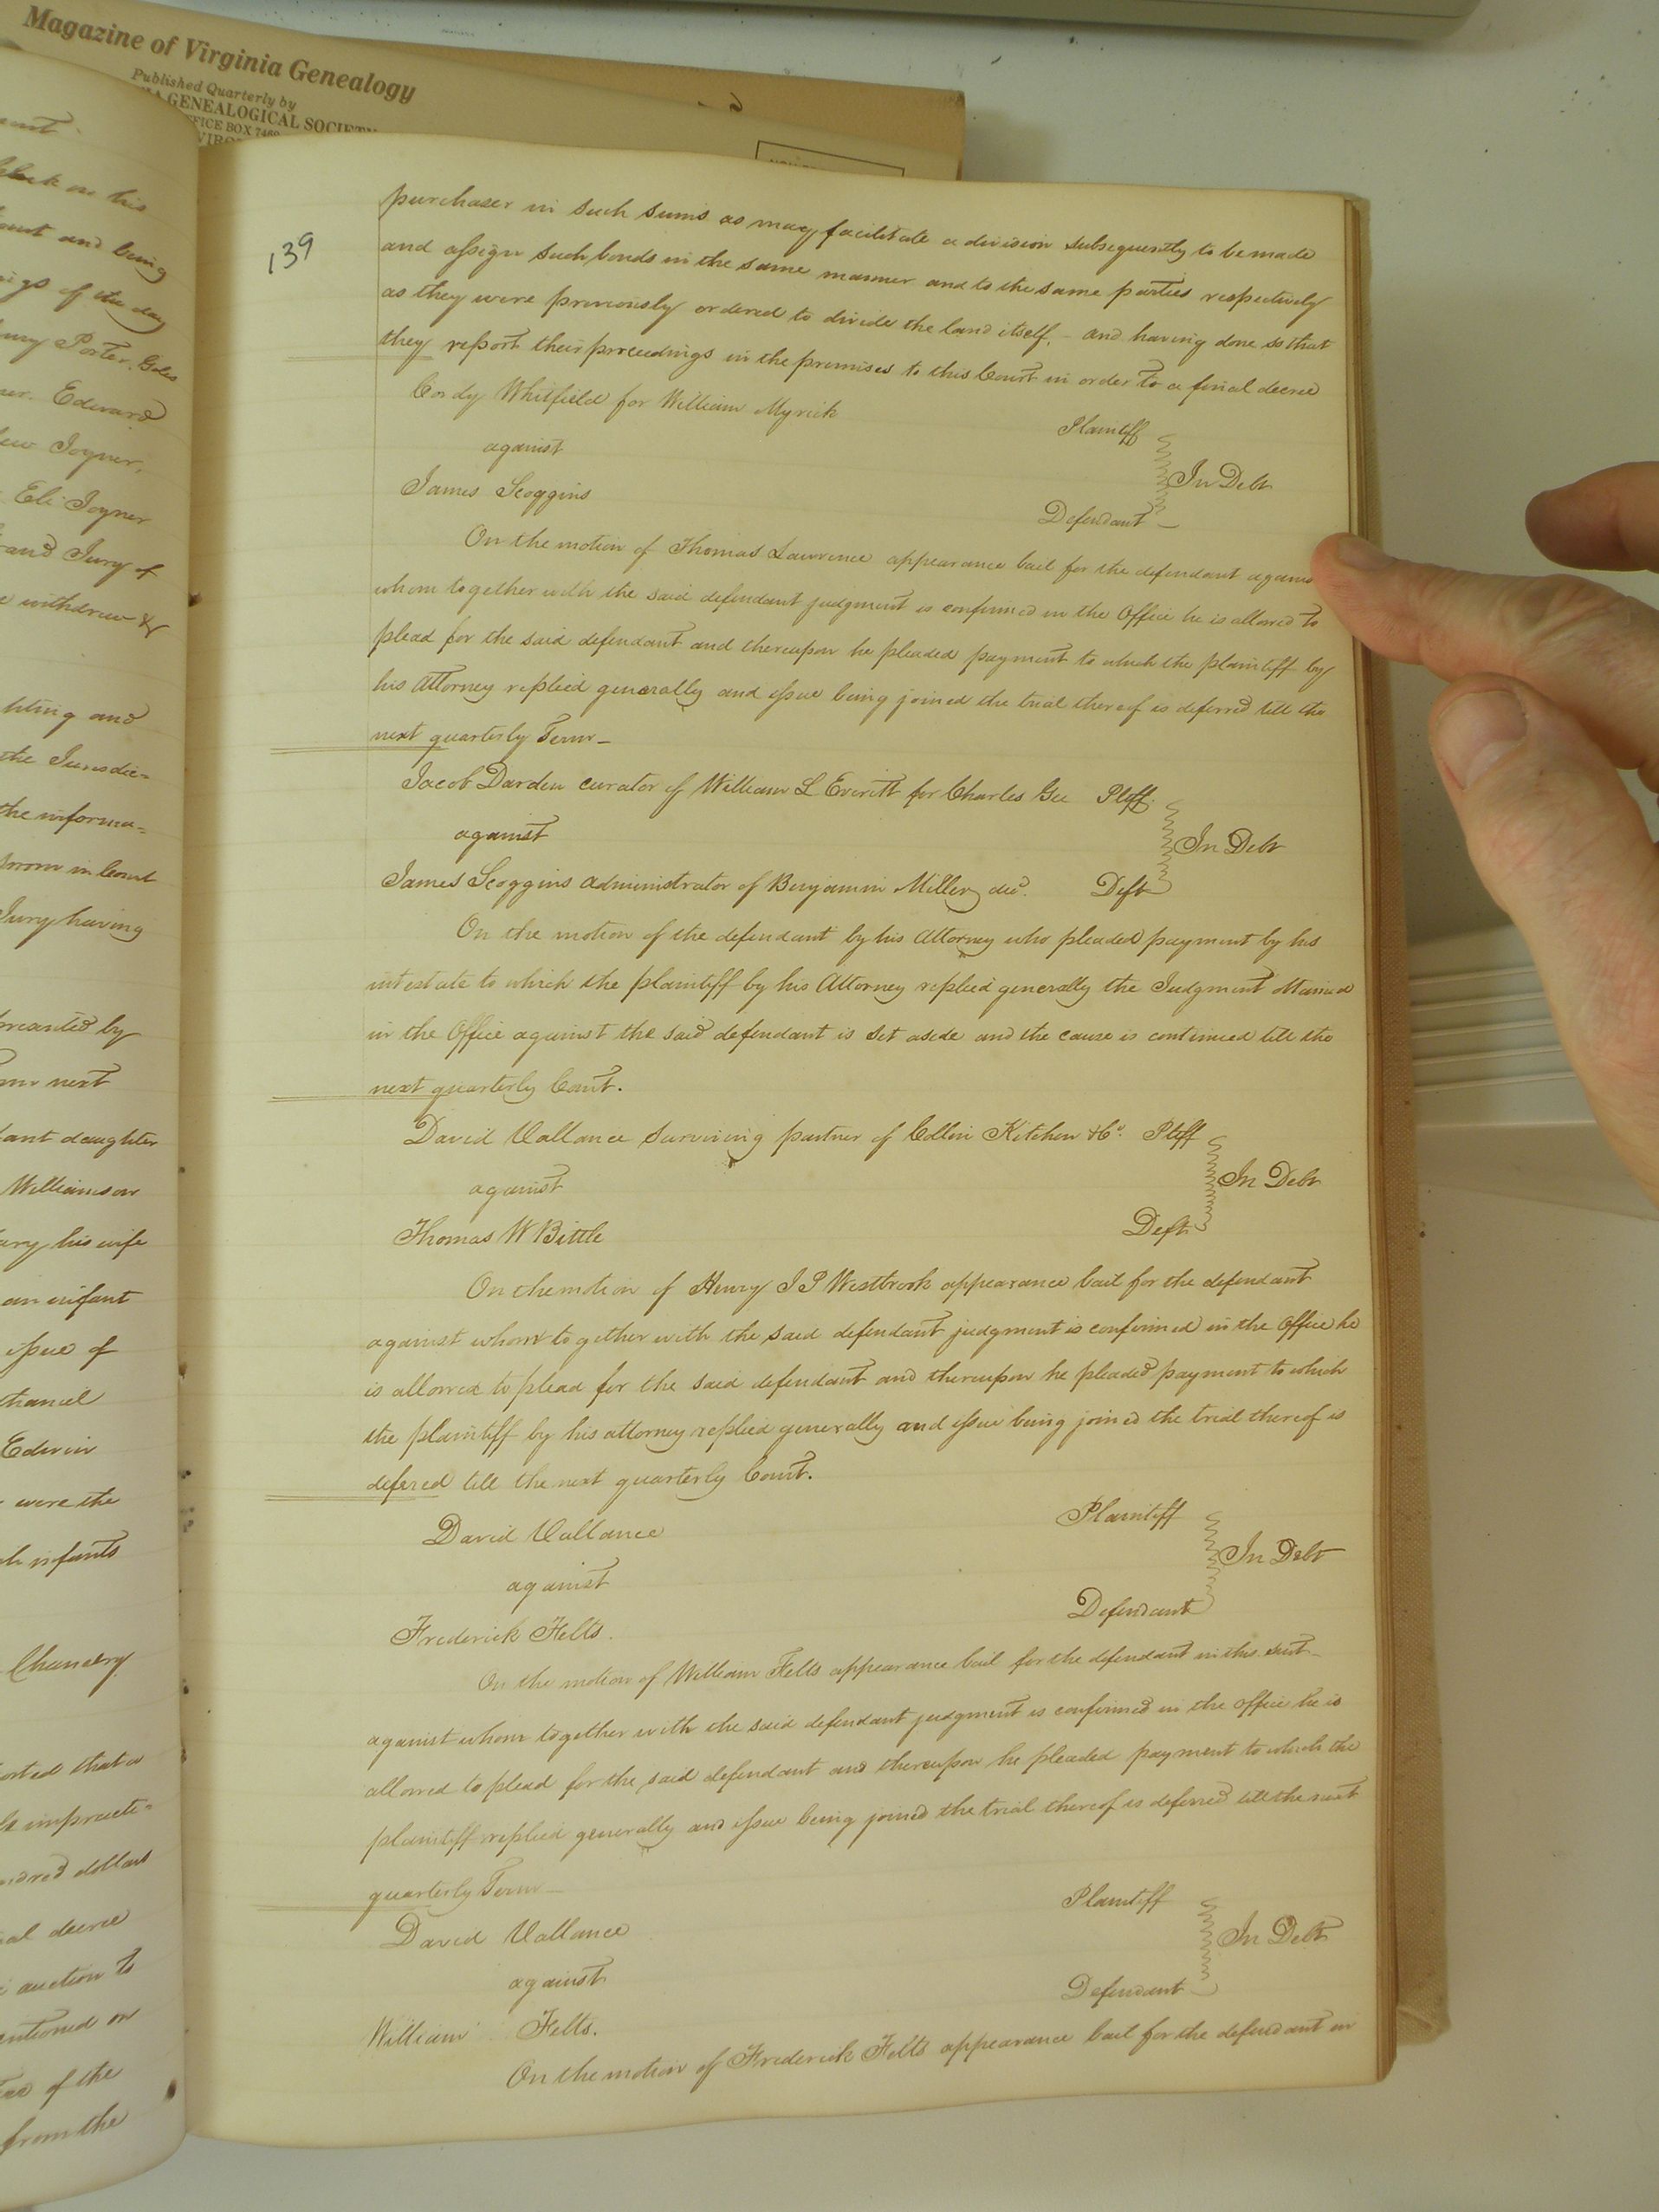 Magazine of Virginia Genealogy
Published Quarterly by
GENEALOGICAL SOCIETY
OFFICE BOX 7469
139
purchaser in such sums as may facilitate a division subsequently to be made
and assign such bonds in the same manner and to the same parties respectively
as they were previously ordered to divide the land itself, – and having done so that
they report their proceedings in the premises to this Court in order to a final decree
Cordy Whitfield for William Myrick Plaintiff
against In Debt
James Scoggins Defendant –
On the motion of Thomas Lawrence appearance bail for the defendant against
whom together with the said defendant judgment is confirmed in the Office he is allowed to
plead for the said defendant and thereupon he pleaded payment to which the plaintiff by
his Attorney replied generally and issue being joined the trial thereof is deferred till the
next quarterly Term –
Jacob Darden curator of William L Everitt for Charles Gee Pltff.
against In Debt
James Scoggins administrator of Benjamin Miller decd. Deft
On the motion of the defendant by his Attorney who pleaded payment by his
intestate to which the plaintiff by his Attorney replied generally the Judgment obtained
in the Office against the said defendant is set aside and the cause is continued till the
next quarterly Court.
David Vallance surviving partner of Collin Kitchen & Co. Pltff
against In Debt
Thomas W Bittle Deft
On the motion of Henry J P Westbrook appearance bail for the defendant
against whom together with the said defendant judgment is confirmed in the Office he
is allowed to plead for the said defendant and thereupon he pleaded payment to which
the plaintiff by his attorney replied generally and issue being joined the trial thereof is
defered till the next quarterly Court.
David Vallance Plaintiff
against In Debt
Frederick Felts. Defendant
On the motion of William Felts appearance bail for the defendant in this suit –
against whom together with the said defendant judgment is confirmed in the office he is
allowed to plead for the said defendant and thereupon he pleaded payment to which the
plaintiff replied generally and issue being joined the trial thereof is deferred till the next
quarterly Term –
David Vallance Plaintiff
against In Debt
William Felts. Defendant
On the motion of Frederick Felts appearance bail for the defendant in